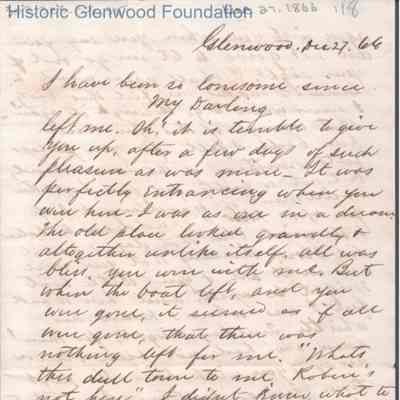 Historic Glenwood Foundation
Dec 27, 1866 118
Glenwood. Dec 27. 66
I have been so lonesome since
My Darling
left me. Oh, it is terrible to give
you up, after a few days of such
pleasure as was mine - It was
perfectly entrancing when you
were here - I was as one in a dream
The old place looked grand, &
altogether unlike itself, all was
bliss, you were with me. But
when the boat left, and you
were gone, it seemed as if all
were gone, that there was
nothing left for me. "Whats
this dull town to me, Robin's
not here". I didn't know what to